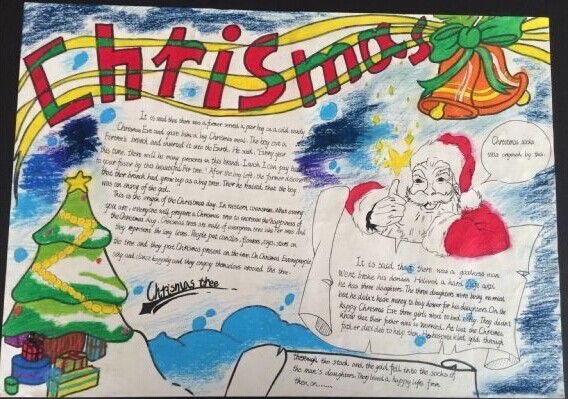 Christmas
It is said that there was a farmer served a poor boy on a cold windy
Christmas Eve and gave him a big Christmas meal. The boy cut a
branch and inserted it into the Earth. He said, "Every year
this time, there will be many presents in this branch. I wish I can pay back
to your favor by this beautiful Fir tree." After the boy left, the farmer discover
that the branch had grown top as a big tree. Then he realised that the boy
was an envoy of the god.
This is the origin of the Christmas day. In western countries, What every
you are, everyone will prepare a Christmas tree to increase the happiness of
the Christmas day. Christmas trees are made of evergreen tree like
they represent the long lives. People put candles, flowers, toys, stars on
the tree and they post Christmas present on the tree. On Christmas Eve, people
sing and dance happily and they enjoy themselves around the tree.
Chrismas thee
Christmas socks
this originated by this.
It is said that there was a godness man
Went broke his domain. He lived a hard life with
he has three daughters. The three daughters were being married
but he didn't have money to buy for his daughters. On the
happy Christmas Eve three girls went to bed early. They didn't
know that their father was so worried. At last the Christmas
father decided to help them. He gold through
through the stack and the gold fell into the socks of
the man's daughters. They loved a happy life from
then on......